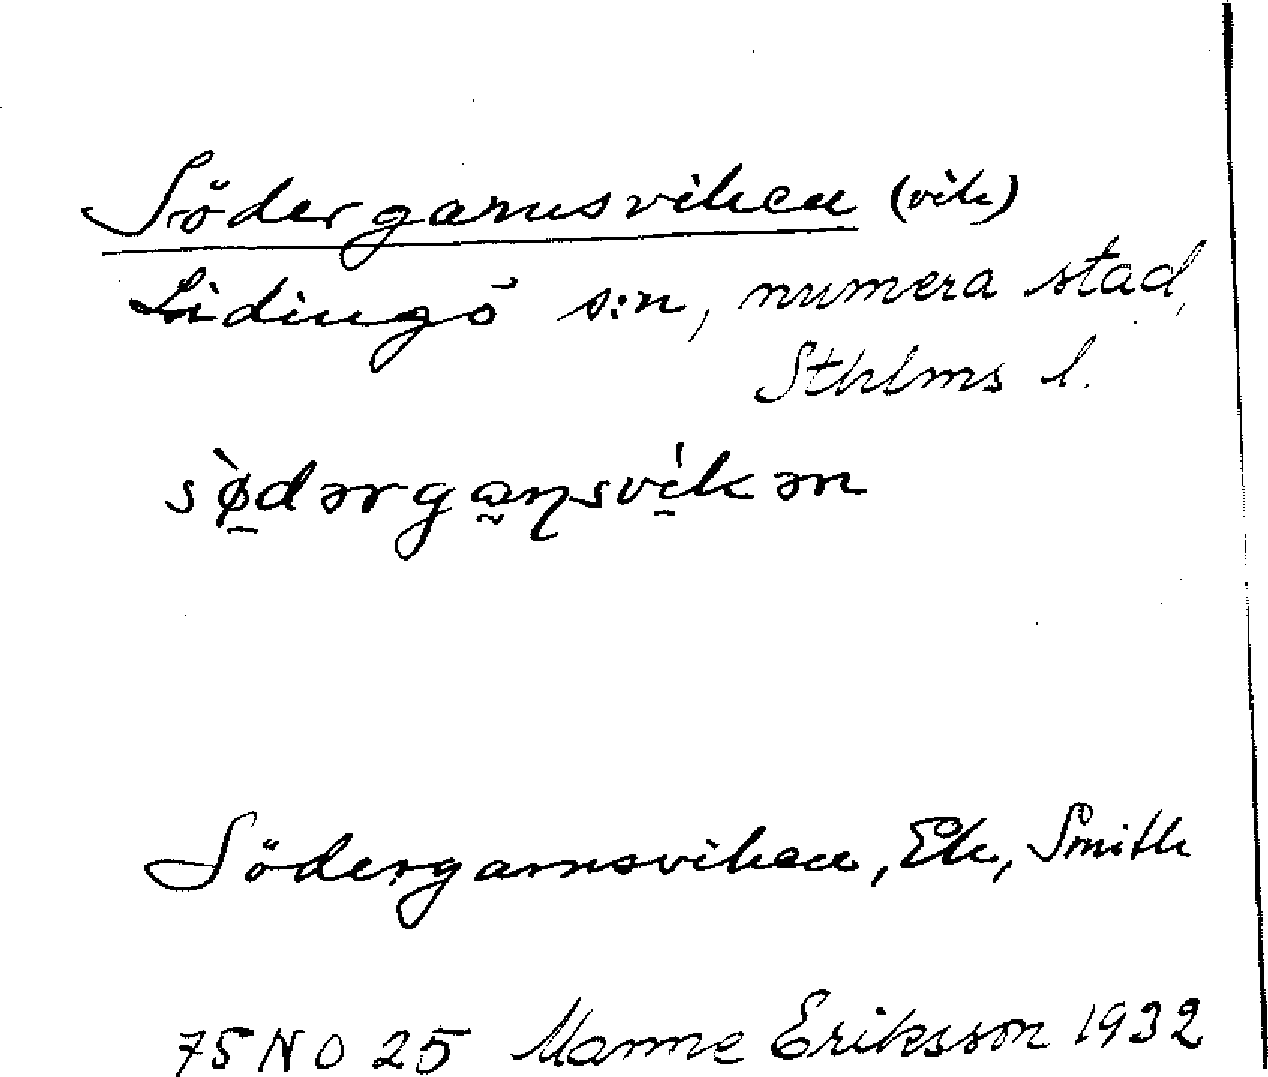 Södergarnsviken (vik)
Lidingö s:n, numera stad,
Sthlms l.
sø̀dərgaɳsvi̍kən
Södergarnsviken, Ek, Smith
75 NO 25 Manne Eriksson 1932